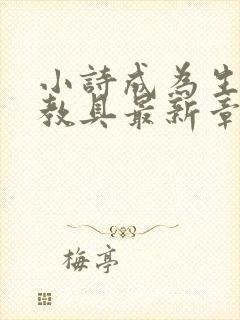 小詩成為生
教具最新章
梅亭